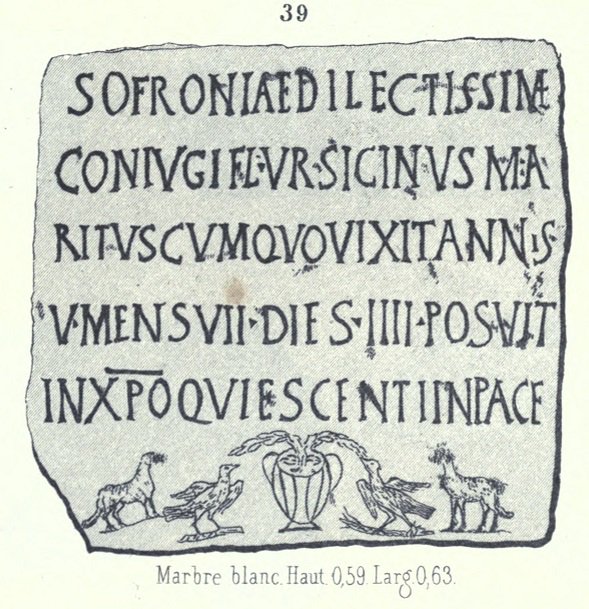 39
SOFRONIAEDILECTISSIMÆ
CONIVGI FL·VR·SICINVS M·A
RITVSCVMQVOVIXITANNIS
V·MENSVII·DIES·IIII·POSVIT
INXP̅OQVIESCENTIINPACE
Marbre blanc. Haut. 0,59. Larg. 0,63.